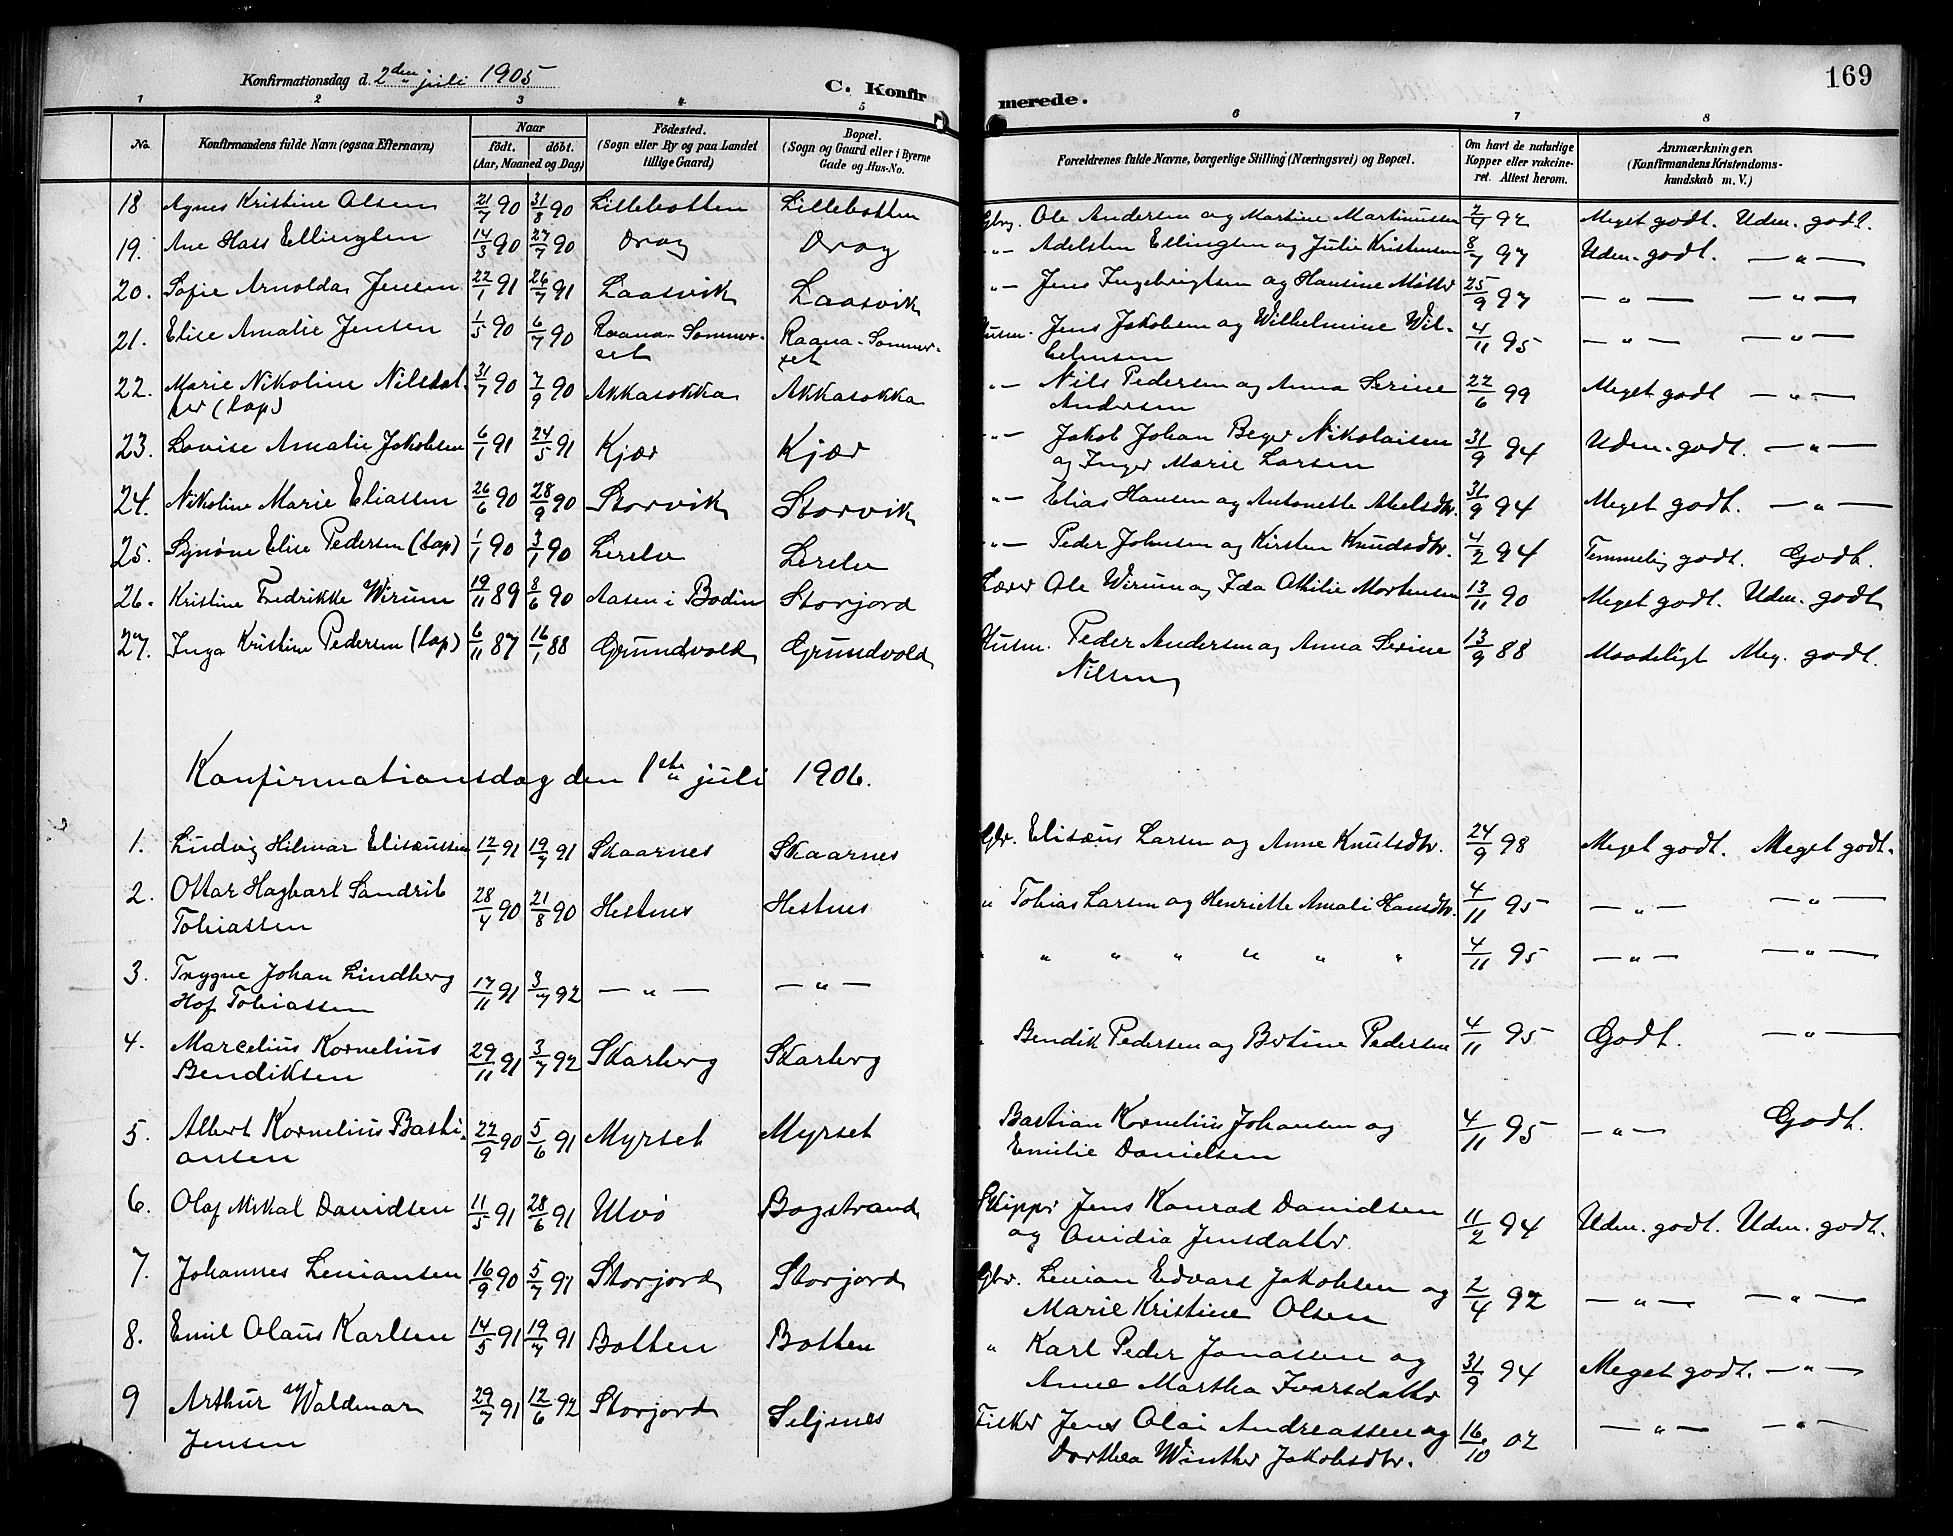 169
Konfirmationsdag d. 2den juli 1905
C. Konfirmerede.
1 2 3 4 5 6 7 8
No.
Konfirmandens fulde Navn (ogsaa Efternavn)
Naar
født. døbt.
(Aar, Maaned og Dag)
Fødested.
(Sogn eller By og paa Landet
tillige Gaard)
Bopæl.
(Sogn og Gaard eller i Byerne
Gade og Hus-No.
Forældrenes fulde Navne, borgerlige Stilling (Næringsvei) og Bopæl.
Om havt de naturlige
Kopper eller vakcine-
ret. Attest herom.
Anmærkninger.
(Konfirmandens Kristendoms-
kundskab m. V.)
18 Agnes Kristine Olsen 21/7 90 31/8 90 Lillebotten Lillebotten Gbrg. Ole Andersen og Martine Martinussen 2/4 92 Meget godt. Udm. godt.
19. Ane Hass Ellingsen 14/3 90 27/7 90 Drag Drag -"- Adelsten Ellingsen og Julie Kristensen 8/7 97 Udm. godt. -"-
20. Sofie Arnolda Jensen 22/1 91 26/7 91 Laasvik Laasvik -"- Jens Ingebrigtsen og Hansine 25/9 97 -"- -"-
21. Elise Amalie Jensen 1/5 90 6/7 90 Raana-Sommer-
set Raana-Sommer-
set Husm. Jens Jakobsen og Wilhelmine Wil-
helmsen 4/11 95 -"- -"-
22. Marie Nikoline Nilsdat-
ter (Lap) 31/7 90 7/9 90 Akkasokka Akkasokka "- Nils Pedersen og Anna Serine
Andersen 22/6 99 Meget godt -"-
23. Lovise Amalie Jakobsen 6/1 91 24/5 91 Kjær Kjær -"- Jakob Johan Beger Nikolaisen
og Inger Marie Larsen 31/9 94 Udm. godt. -"-
24. Nikoline Marie Eliassen 26/6 90 28/9 90 Storvik Storvik "- Elias Hansen og Antonette Abelsdtr. 31/9 94 Meget godt. -"-
25. Synøne Elise Pedersen (Lap) 1/1 90 3/1 90 Lerelv Lerelv "- Peder Johnsen og Kirsten Knudsdtr. 4/2 94 Temmelig godt. Godt.
26. Kristine Fredrikke Wirum 19/11 89 8/6 90 Aasen i Bodin Storjord Lærer Ole Wirum og Ida Othilie Mortensen 13/11 90 Meget godt. Udm. godt
27. Inga Kristine Pedersen (Lap) 6/11 87 16/1 88 Grundvold Grundvold Husm. Peder Andersen og Anna Serine
Nilsen 13/9 88 Maadeligt Meg. godt.
Konfirmationsdag den 1ste juli 1906.
1. Ludvig Hilmar Elisæussen 12/1 91 19/7 91 Skaarnes Skaarnes Gbr. Elisæus Larsen og Anne Knutsdtr. 24/9 98 Meget godt. Meget godt.
2. Ottar Hagbart Sandrib
Tobiassen 28/4 90 21/8 90 Hestnes Hestnes " Tobias Larsen og Henriette Amali Hansdtr. 4/11 95 -"- -"-
3. Trygve Johan Lindberg
Hof Tobiassen 17/11 91 3/7 92 -"- -"- " " " " " " " 4/11 95 -"- -"-
4. Marcelius Kornelius
Bendiksen 29/11 91 3/7 92 Skarberg Skarberg Bendik Pedersen og Betine Pedersen 4/11 95 Godt. -"-
5. Albert Kornelius Basti-
ansen 22/9 90 5/6 91 Myrset Myrset Bastian Kornelius Johansen og
Emilie Danielsen 4/11 95 -"- Godt.
6. Olaf Mikal Davidsen 11/5 91 28/6 91 Ulvø Bogstrand Skipper Jens Konrad Davidsen
og Ovidia Jensdatter. 11/2 94 Udm. godt. Udm. godt.
7. Johannes Leviansen 16/9 90 5/7 91 Storjord Storjord Gbr. Levian Edvard Jakobsen og
Marie Kristine Olsen 2/4 92 -"- -"-
8. Emil Olaus Karlsen 14/5 91 19/7 91 Botten Botten " Karl Peder Jonassen og
Anne Martha Ivarsdatter 31/9 94 Meget godt. -"-
9 Arthur Waldemar
Jensen 29/7 91 12/6 92 Storjord Seljenes Fisker Jens Olai Andreassen og
Dorthea Winther Jakobsdtr. 16/10 02 -"- -"-